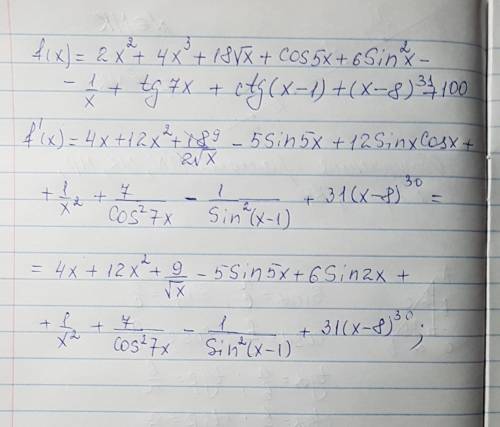 f(x) = 2x² + 4x³ + 18√x + cos5x + 6Sin²x -
- 1/x + tg7x + ctg(x-1) + (x-8)³¹ + 100
f'(x) = 4x + 12x² + 18 9/2√x - 5Sin5x + 12SinxCosx +
+ 1/x² + 7/Cos²7x - 1/Sin²(x-1) + 31(x-8)³⁰ =
= 4x + 12x² + 9/√x - 5Sin5x + 6Sin2x +
+ 1/x² + 7/Cos²7x - 1/Sin²(x-1) + 31(x-8)³⁰;